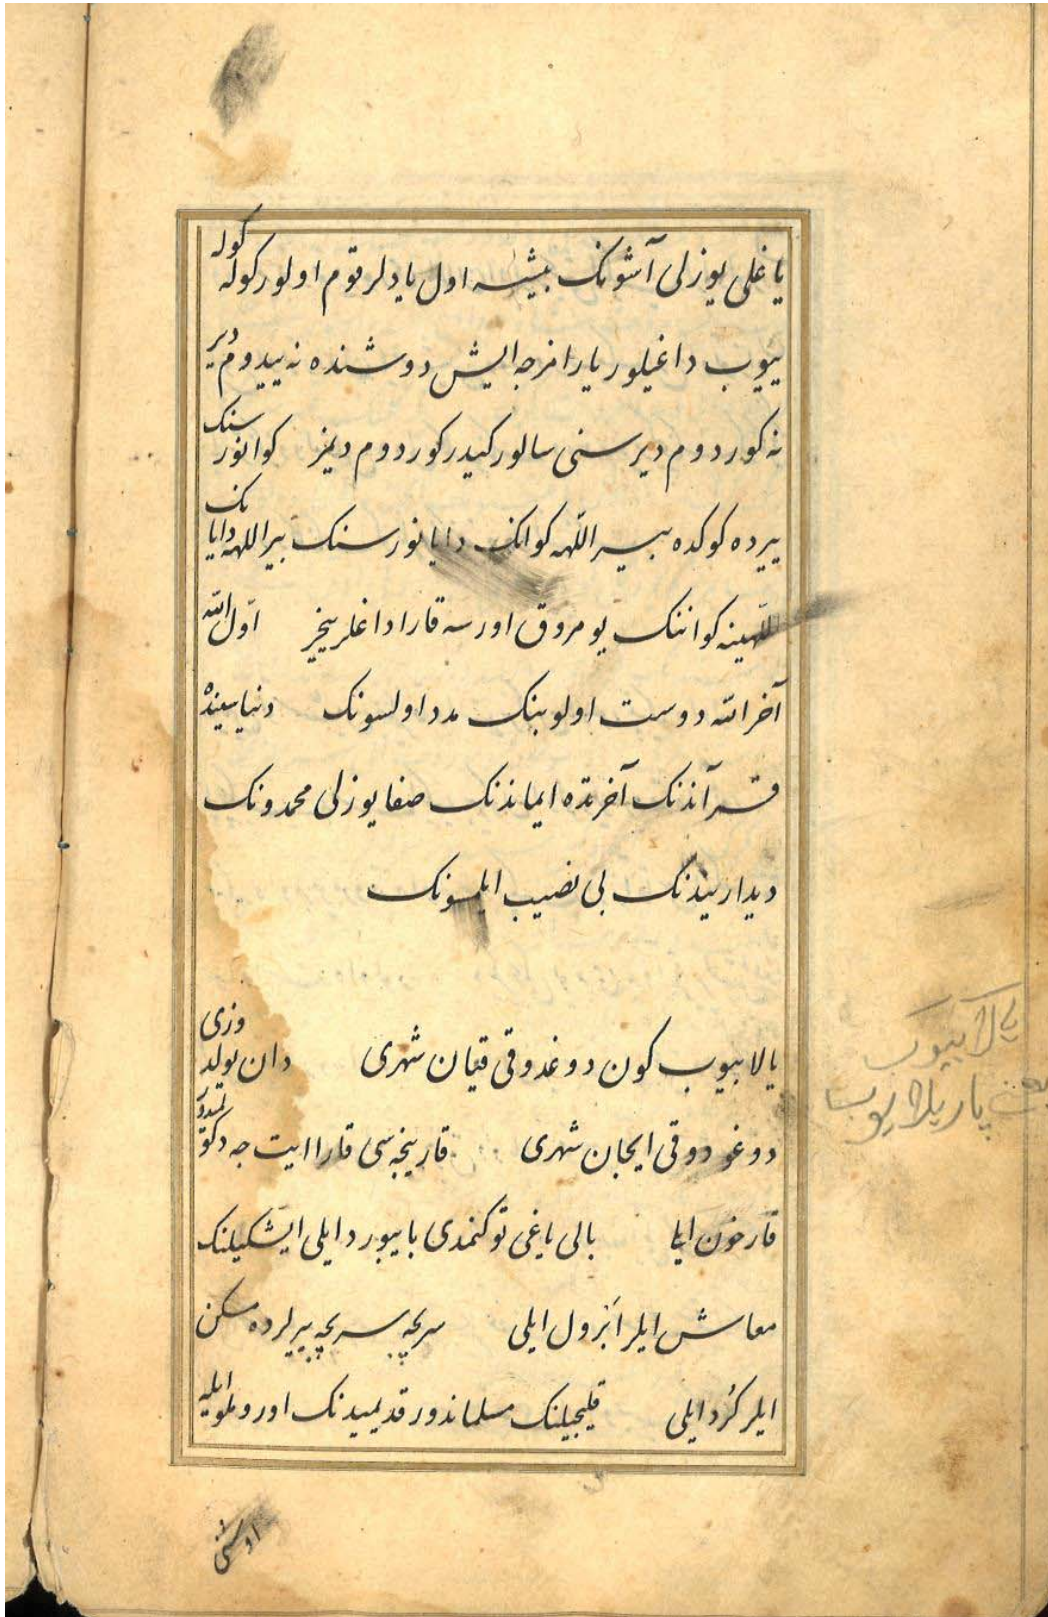 یاغلی یوزلی آشونک بیشه اول یادلر قوم اولور کوله کوله
ییوب داغیلور یارامزجه ایش دوشنده نه ییدوم دیر
نه کوردوم دیر سنی سالور کیدر کوردوم دیمز کوانورسنک
ییرده کوکده بیر اللهه کوانک دایانورسنک بیر اللهه دایانک
اللهینه کواننک یومروق اورسه قارا داغلر ییخر اول الله
آخر الله دوست اولوبنک مدد اولسونک دنیاسینده
قرآندنک آخرتده ایماندنک صفا یوزلی محمدونک
دیداریندنک بی نصیب ایلمسونک
یالابیوب کون دوغدوقی قیان شهری دان یولدوزی
دوغدوقی ایجان شهری قارینجه سی قارا ایت جه دکور
قارخون ایلی بالی یاغی توکنمدی باییورد ایلی ایشکیلنک
معاش ایلر ابزول ایلی سریجه سریجه ییرلرده مسکن
ایلر کُرد ایلی قلیجیلنک مسلماندور قدیمیدنک اوروملو ایله
یالابیوب